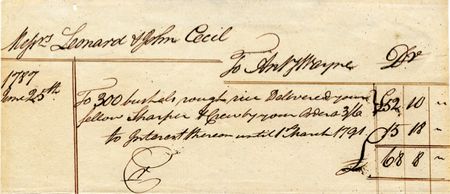 Messrs Leonard & John Cecil
To Anty Wayne Dr
1787
June 25th
To 300 bushels rough rice Delivered your £52 10 "
fellow Sharper & Crew by your Order a 3/6
to Interest thereon until 1 March 1791 15 18 "
£ 68 8 "